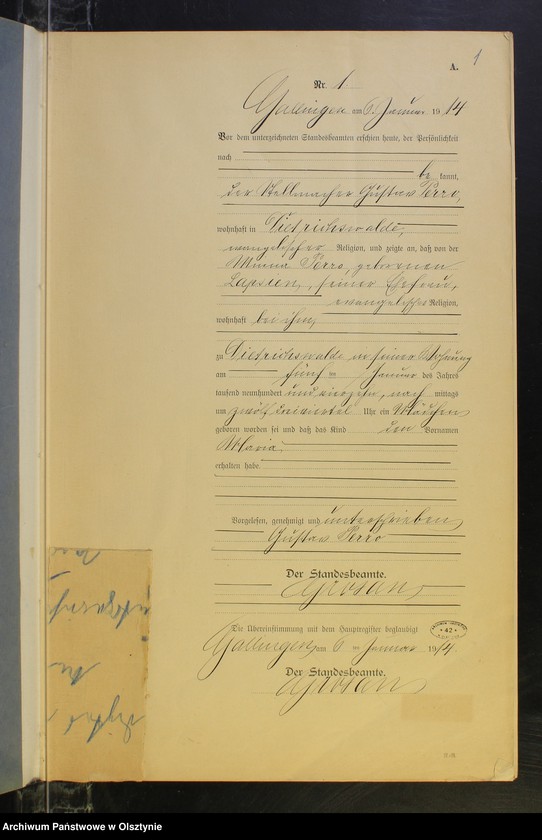 A.
1
Nr. 1
Gallingen am 6. Januar 1914
Vor dem unterzeichneten Standesbeamten erschien heute, der Persönlichkeit
nach
be kannt,
der Stellmacher Gustav Perro,
wohnhaft in Dietrichswalde,
evangelischer Religion, und zeigte an, daß von der
Minna Perro, geborenen
Lapsien, seiner Ehefrau,
evangelischer Religion,
wohnhaft bei ihm,
zu Dietrichswalde in seiner Wohnung
am fünf ten Januar des Jahres
tausend neunhundert und vierzehn, nach mittags
um zwölf dreiviertel Uhr ein Mädchen
geboren worden sei und daß das Kind den Vornamen
Maria
erhalten habe.
Vorgelesen, genehmigt und unterschrieben
Gustav Perro
Der Standesbeamte.
Grosan
Die Übereinstimmung mit dem Hauptregister beglaubigt
Gallingen, am 6 ten Januar 1914.
Der Standesbeamte.
Grosan
42
Archiwum Państwowe w Olsztynie